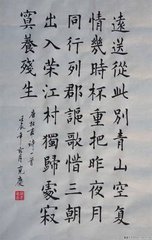 遠送從此別青山空復
情幾時杯重把昨夜月
同行列郡謳歌惜三朝
出入榮江村獨歸處寂
寞養殘生
唐杜甫詩一首
壬辰年